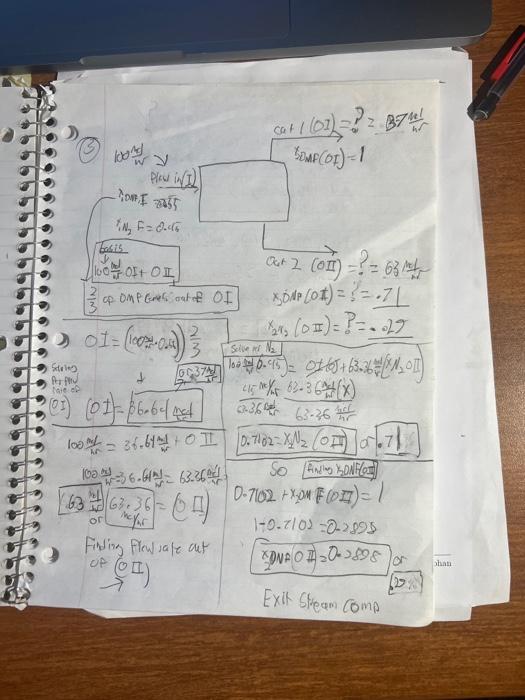 5
100 mol/hr
Flow in (I)
out 1 (OI) = ? = 37 mol/hr
xDMF(OI) = 1
xDMF, I
xN2 F = 0.45
basis
100 mol/hr OI + OII
2/3 of DMF comes out of OI
out 2 (OII) = ? = 63 mol/hr
xDMF (OII) = ? = .71
x2N2 (OII) = ? = .29
OI = (100 mol/hr · 0.55) 2/3
Solving for flow rate of (OI)
or 37 mol/hr
(OI) = 36.64 mol/hr
100 mol/hr = 36.64 mol/hr + OII
100 mol/hr - 36.64 mol/hr = 63.36 mol/hr
63 mol/hr or 63.36 mol/hr = (OII)
Finding flow rate out
of (OII)
Solve for N2
100 mol/hr 0.45 = OI(0) + 63.36 mol/hr (XN2OII)
45 mol/hr 63.36 mol/hr (x)
63.36 mol/hr 63.36 mol/hr
0.7102 = x2N2 (OII) or .71
So finding xDMF(OII)
0.7102 + x2DMF(OII) = 1
1-0.7102 = 0.2898
xDMF OII = 0.2898 or
.29
Exit Stream Comp
phan